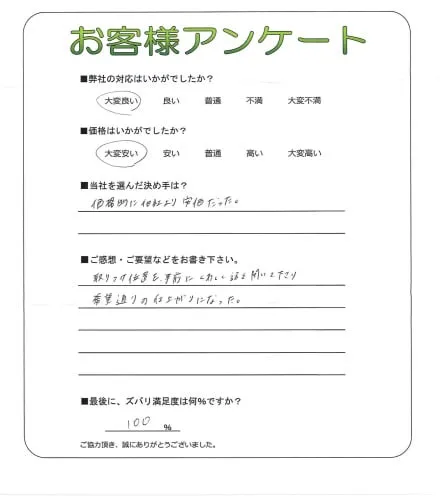 お客様アンケート
■弊社の対応はいかがでしたか？
大変良い 良い 普通 不満 大変不満
■価格はいかがでしたか？
大変安い 安い 普通 高い 大変高い
■当社を選んだ決め手は？
価格的に他社より安価だった。
■ご感想・ご要望などをお書き下さい。
取りつけ位置を、事前にくわしく話を聞いて下さり
希望通りの仕上がりになった。
■最後に、ズバリ満足度は何％ですか？
100 ％
ご協力頂き、誠にありがとうございました。